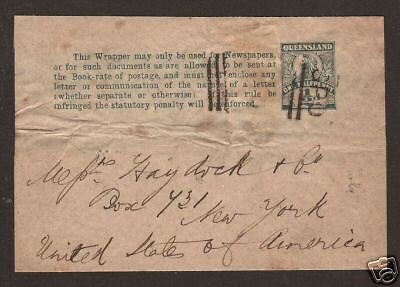 This Wrapper may only be used for Newspapers,
or for such documents as are allowed to be sent at
the Book-rate of postage, and must not enclose any
letter or communication of the nature of a letter
(whether separate or otherwise). If this rule be
infringed the statutory penalty will be enforced.
QUEENSLAND
ONE HALFPENNY
Messrs Haydock & Co
Box 731
New York
United States of America